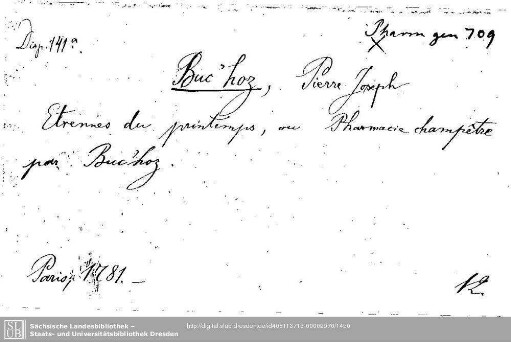 Disp. 141ᵃ.
Pharm gen 709
Buc'hoz, Pierre Joseph
Etrennes du printemps, ou Pharmacie champêtre
par Buc'hoz.
Paris, 1781. –
12.
Sächsische Landesbibliothek –
Staats- und Universitätsbibliothek Dresden